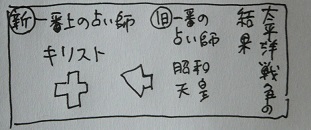 太平洋戦争の
結果
旧一番の
占い師
昭和
天皇
新一番上の占い師
キリスト